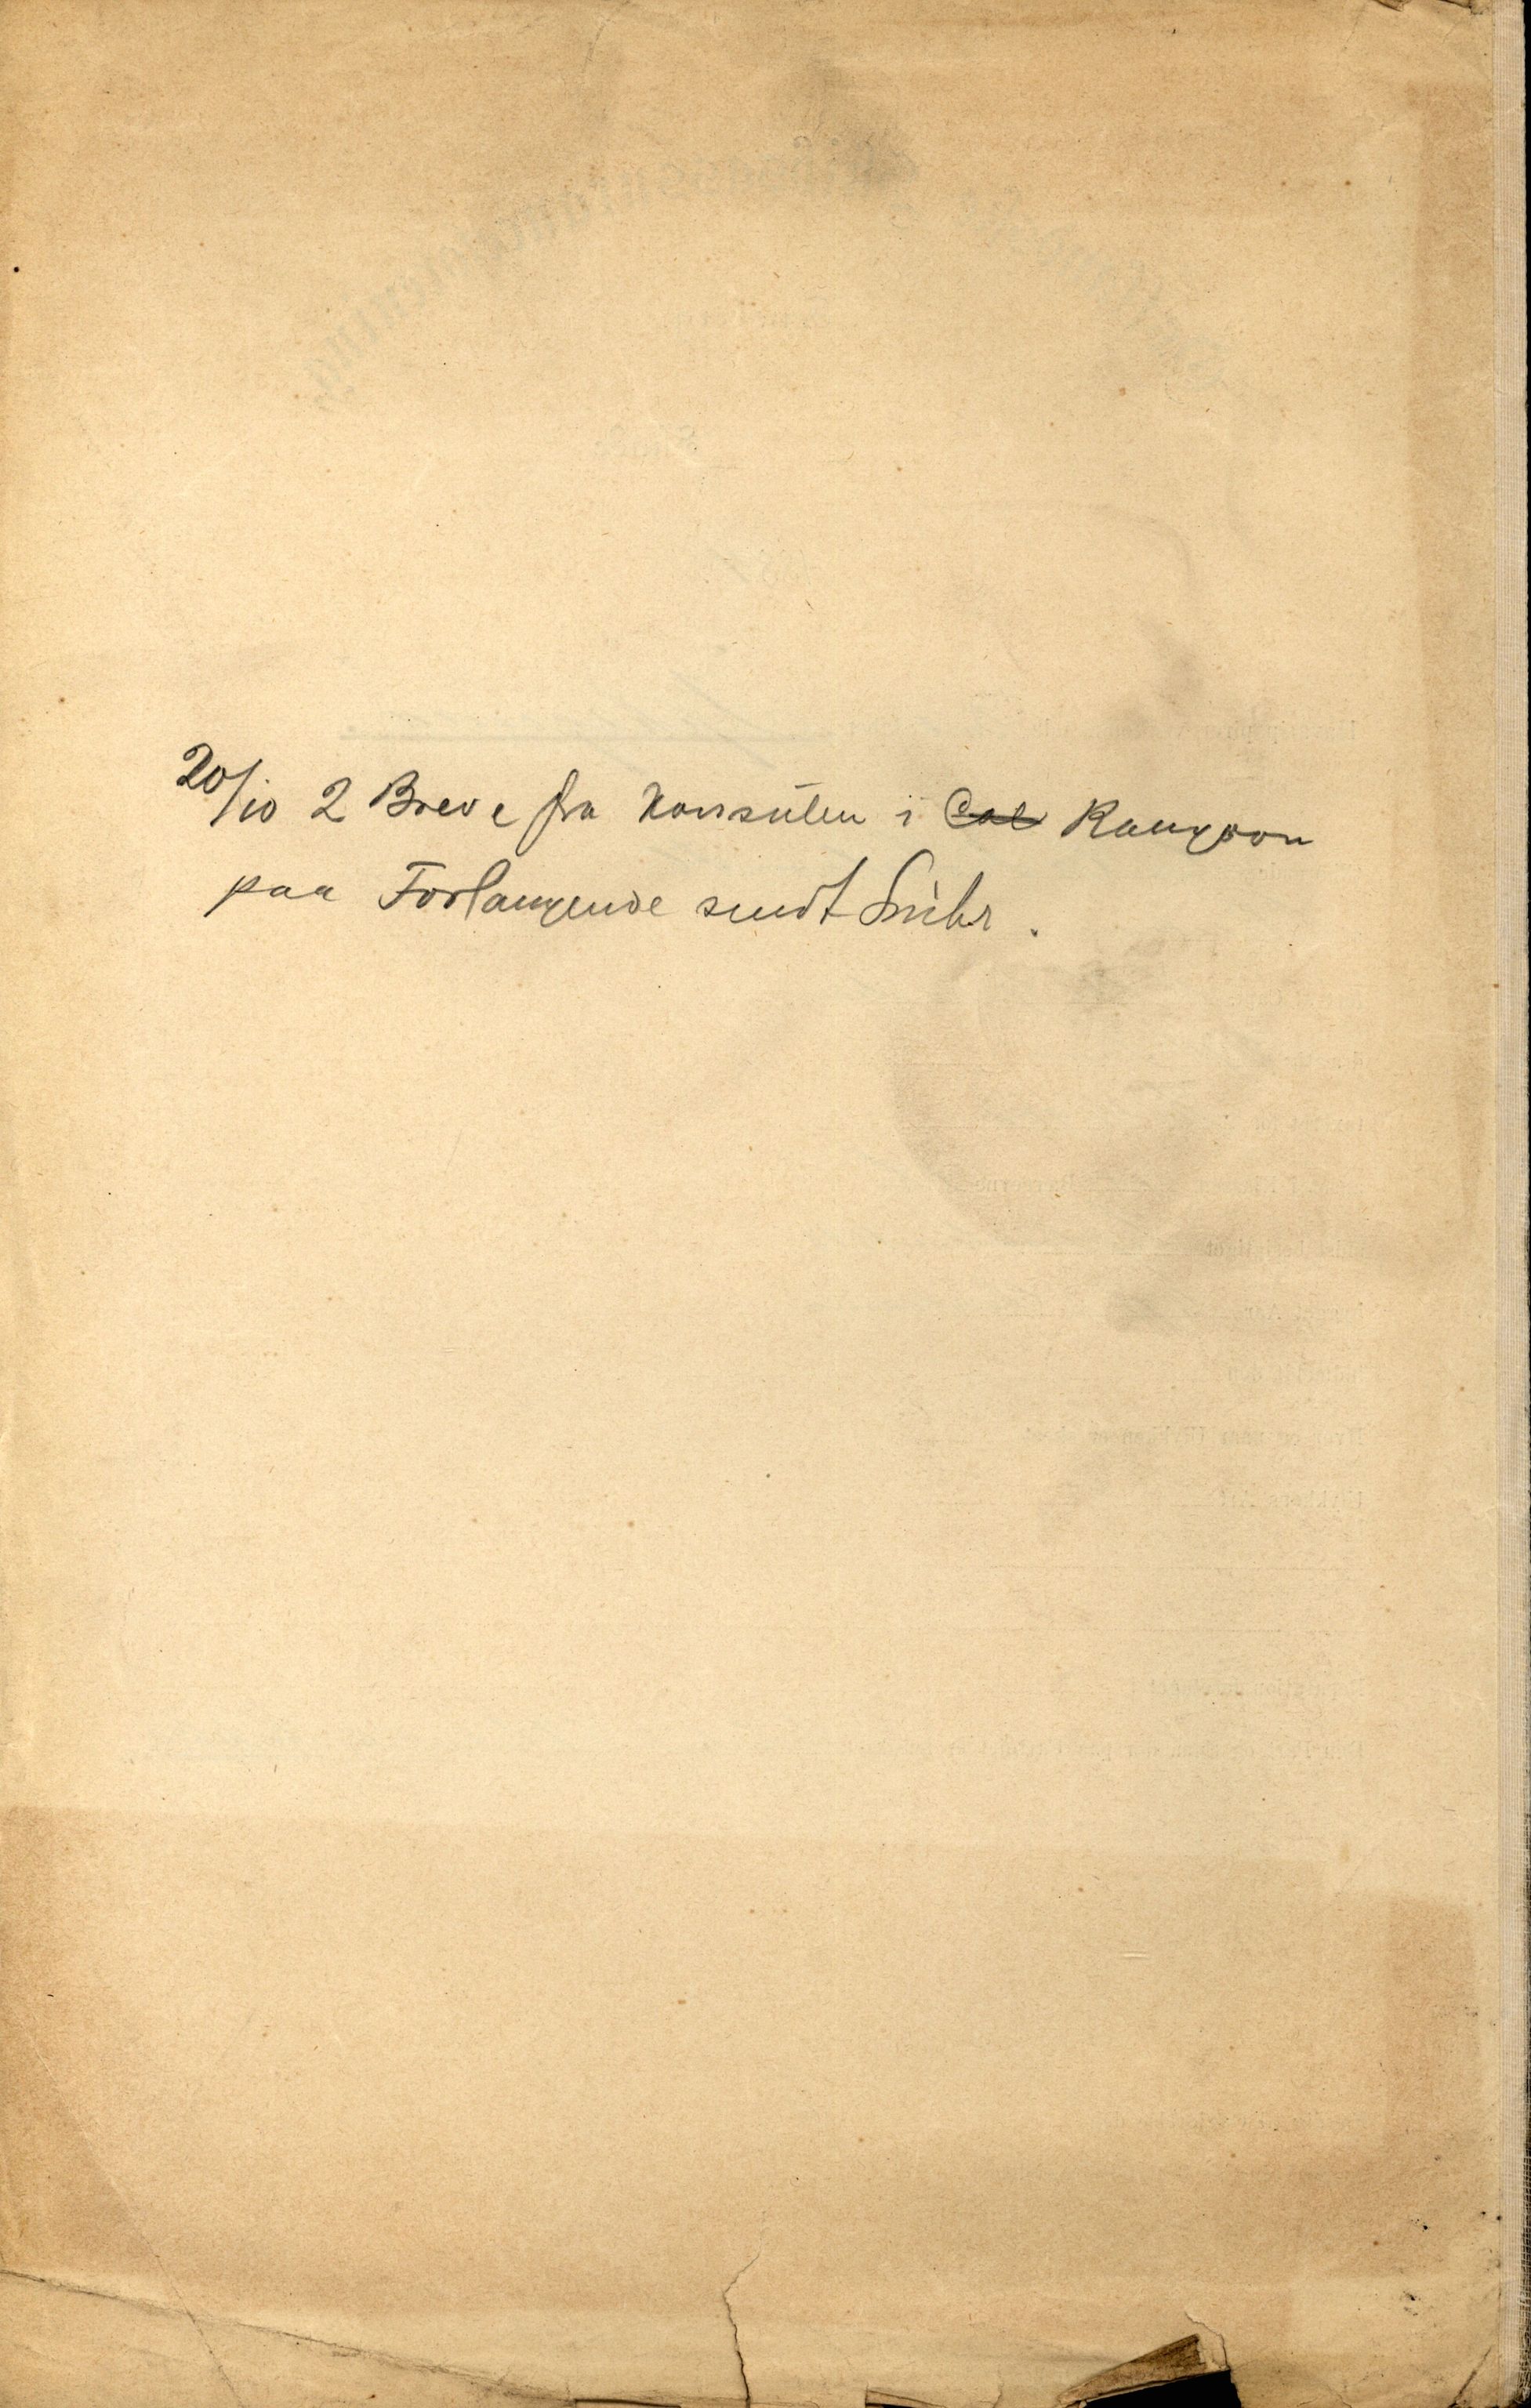 20/10 2 Breve fra Konsulen i Cal Rangoon
paa Forlangende sendt Suhr.